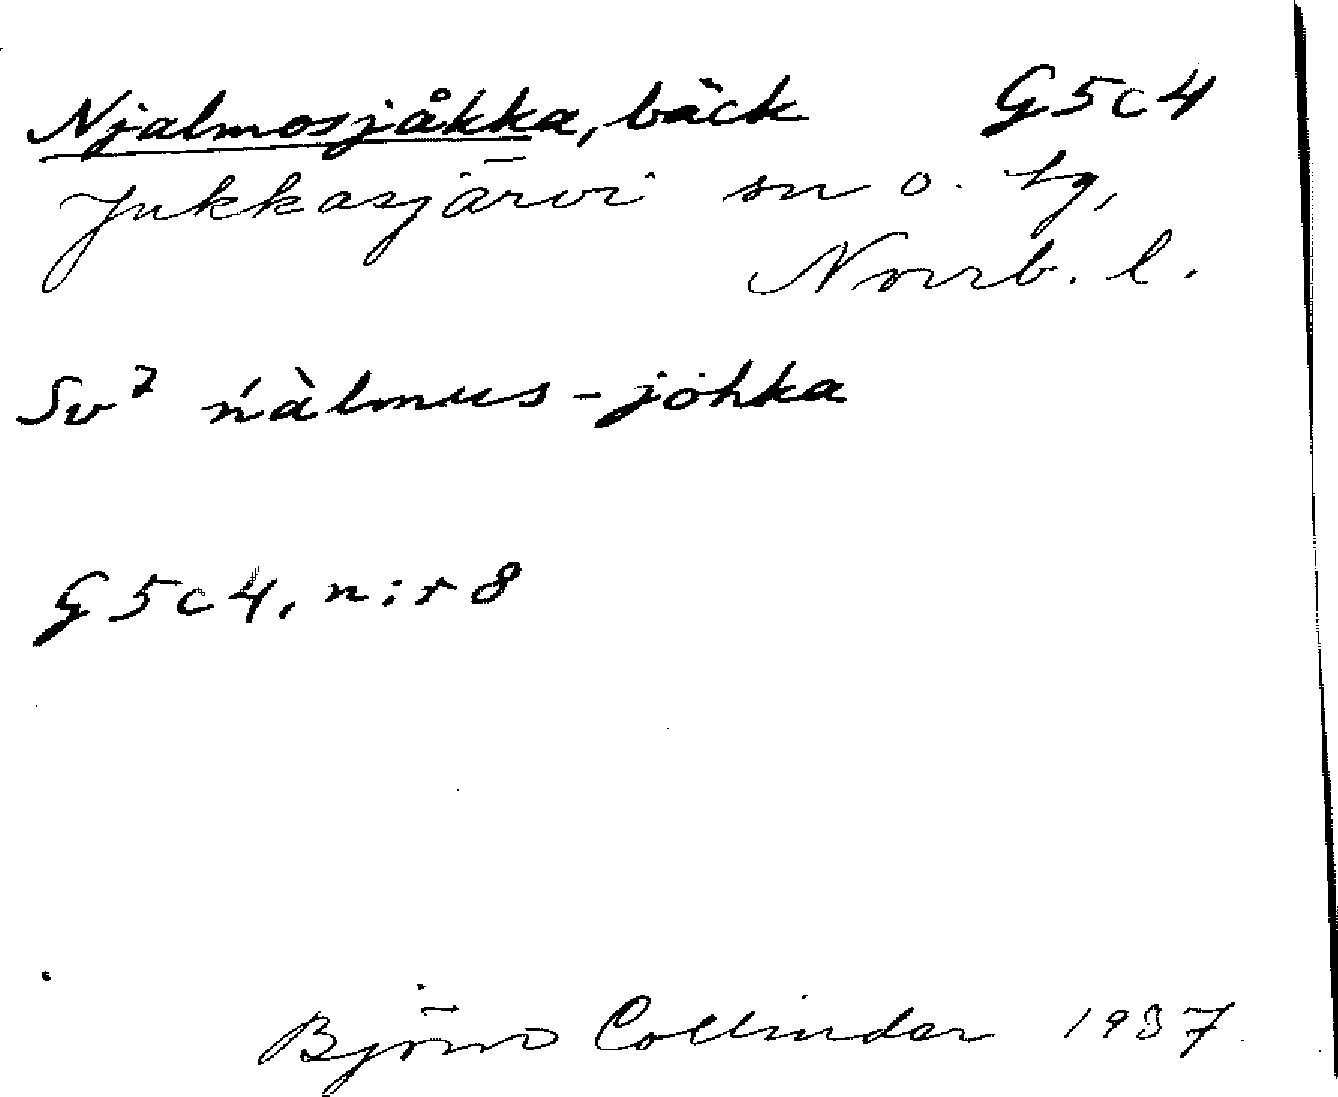 Njalmosjåkka, bäck G5c4
Jukkasjärvi sn o. tg,
Norrb. l.
Sv⁷ ńàlmus-johka
G5c4, n:r 8
Björn Collinder 1937